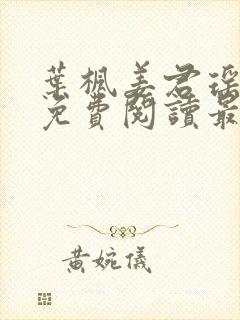 葉楓姜君瑶
免費閱讀最
黃婉儀